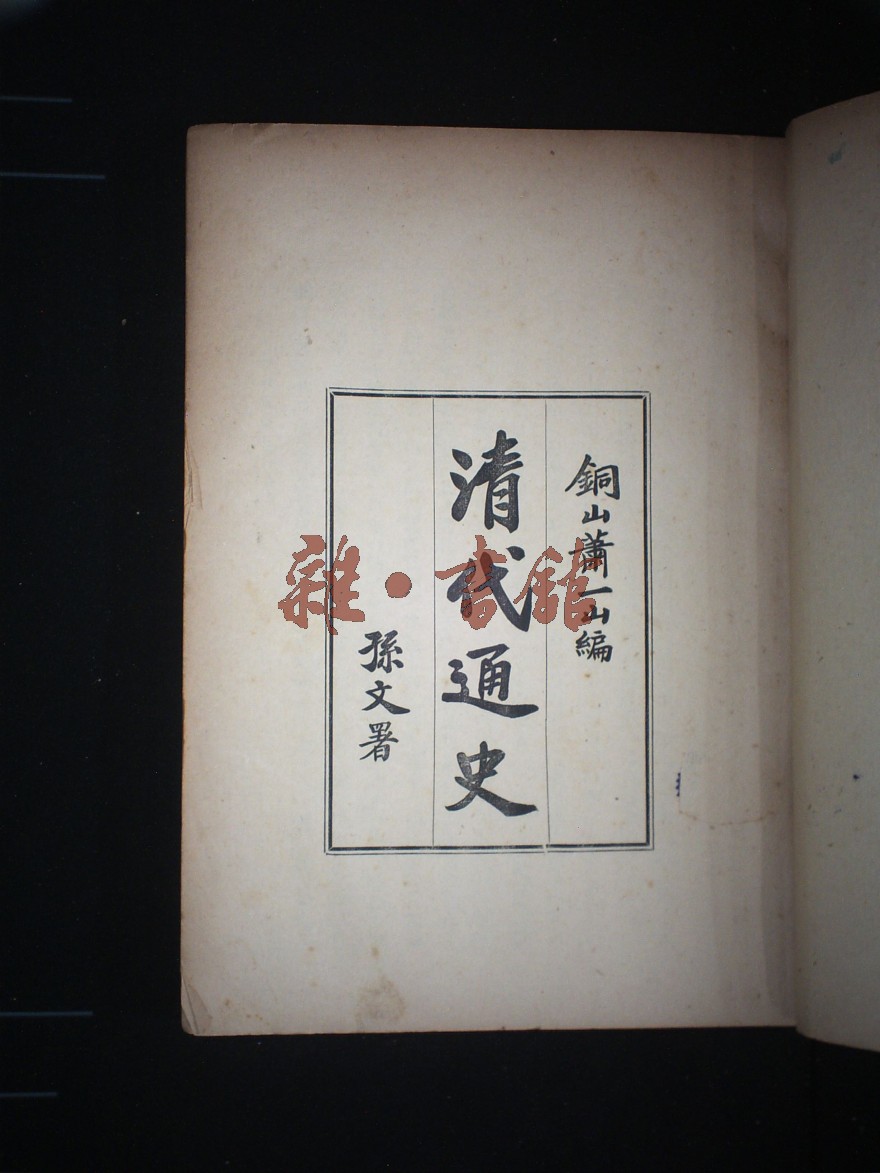 銅山蕭一山編
清代通史
孫文署
雜·書館